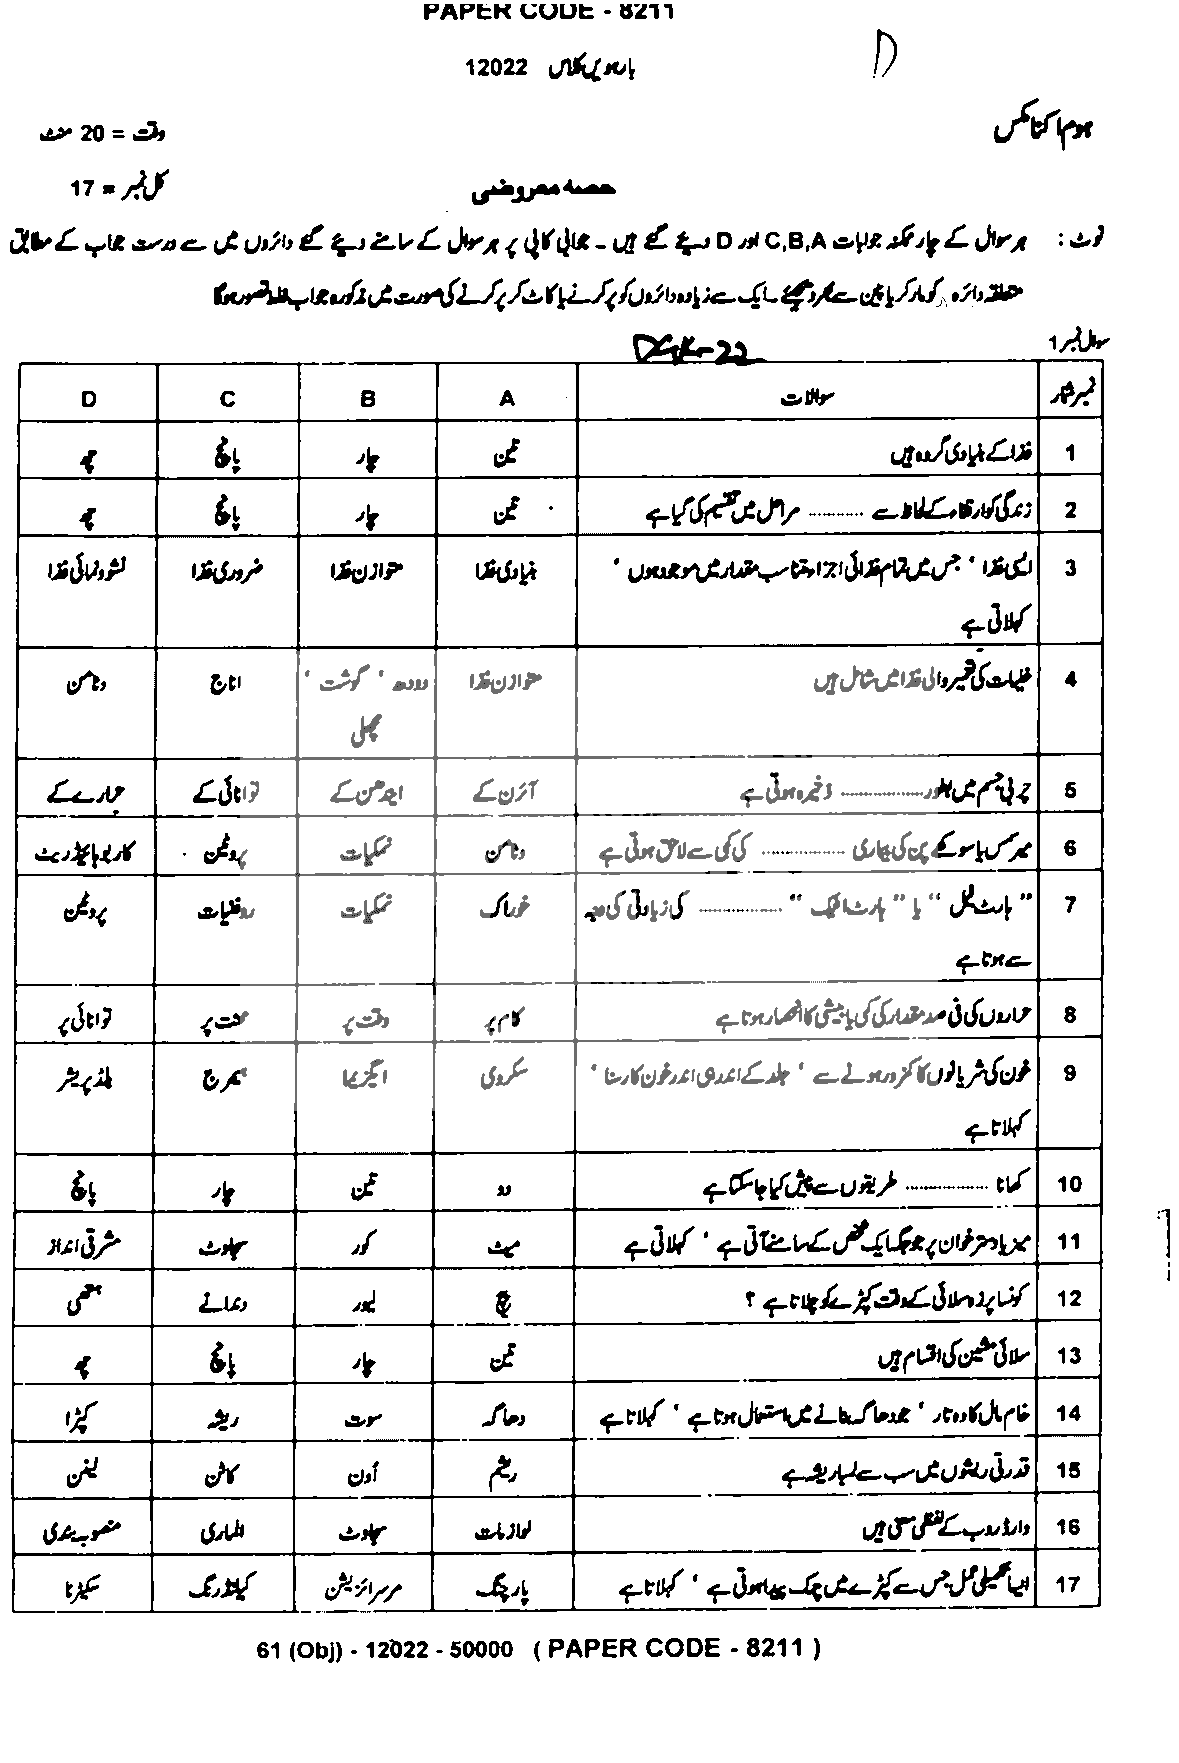 PAPER CODE - 8211
بارھویں کلاس 12022
D
ہوم اکنامکس
وقت = 20 منٹ
حصہ معروضی
کل نمبر = 17
نوٹ : ہر سوال کے چار ممکنہ جوابات C,B,A اور D دیئے گئے ہیں ۔ جوابی کاپی پر ہر سوال کے سامنے دیئے گئے دائروں میں سے درست جواب کے مطابق
متعلقہ دائرہ کو مارکر یا پین سے بھر دیجئے ۔ ایک سے زیادہ دائروں کو پر کرنے یا کاٹ کر پر کرنے کی صورت میں مذکورہ جواب غلط تصور ہوگا
سوال نمبر 1
DGK-22
نمبر شمار سوالات A B C D
1 غذا کے بنیادی گروہ ہیں تین چار پانچ چھ
2 زندگی کو ارتقاء کے لحاظ سے ............ مراحل میں تقسیم کیا گیا ہے تین چار پانچ چھ
3 ایسی غذا ' جس میں تمام غذائی اجزا متناسب مقدار میں موجود ہوں ' بنیادی غذا متوازن غذا ضروری غذا نشوونمائی غذا
کہلاتی ہے
4 خلیات کی تعمیر والی غذا میں شامل ہیں متوازن غذا دودھ ' گوشت ' اناج وٹامن
مچھلی
5 چربی جسم میں بطور ................ ذخیرہ ہوتی ہے آئرن کے ایندھن کے توانائی کے حرارے کے
6 میرسمس یا سوکھے پن کی بیماری ................ کی کمی سے لاحق ہوتی ہے وٹامن نمکیات پروٹین کاربوہائیڈریٹ
7 " ہارٹ فیل " یا " ہارٹ اٹیک " ................ کی زیادتی کی وجہ خوراک نمکیات روغنیات پروٹین
سے ہوتا ہے
8 حراروں کی فی صد مقدار کی کمی یا بیشی کا انحصار ہوتا ہے کام پر وقت پر محنت پر توانائی پر
9 خون کی شریانوں کا کمزور ہونے سے ' جلد کے اندر ہی اندر خون کا رسنا ' سکروی ایگزیما ہیمرج بلڈ پریشر
کہلاتا ہے
10 کھانا ................ طریقوں سے پیش کیا جا سکتا ہے دو تین چار پانچ
11 میز یا دسترخوان پر جو جگہ ایک شخص کے سامنے آتی ہے ' کہلاتی ہے میٹ کور سجاوٹ مشرقی انداز
12 کونسا پرزہ سلائی کے وقت کپڑے کو چلاتا ہے ؟ پیچ لیور دندانے ہتھی
13 سلائی مشین کی اقسام ہیں تین چار پانچ چھ
14 خام مال کا وہ تار ' جو دھاگہ بنانے میں استعمال ہوتا ہے ' کہلاتا ہے دھاگہ سوت ریشہ کپڑا
15 قدرتی ریشوں میں سب سے لمبا ریشہ ہے ریشم اُون کاٹن لینن
16 وارڈ روب کے لفظی معنی ہیں لوازمات سجاوٹ الماری منصوبہ بندی
17 ایسا تکمیلی عمل جس سے کپڑے میں چمک پیدا ہوتی ہے ' کہلاتا ہے پارچنگ مرسرائزیشن کیلنڈرنگ سکیڑنا
61 (Obj) - 12022 - 50000 ( PAPER CODE - 8211 )